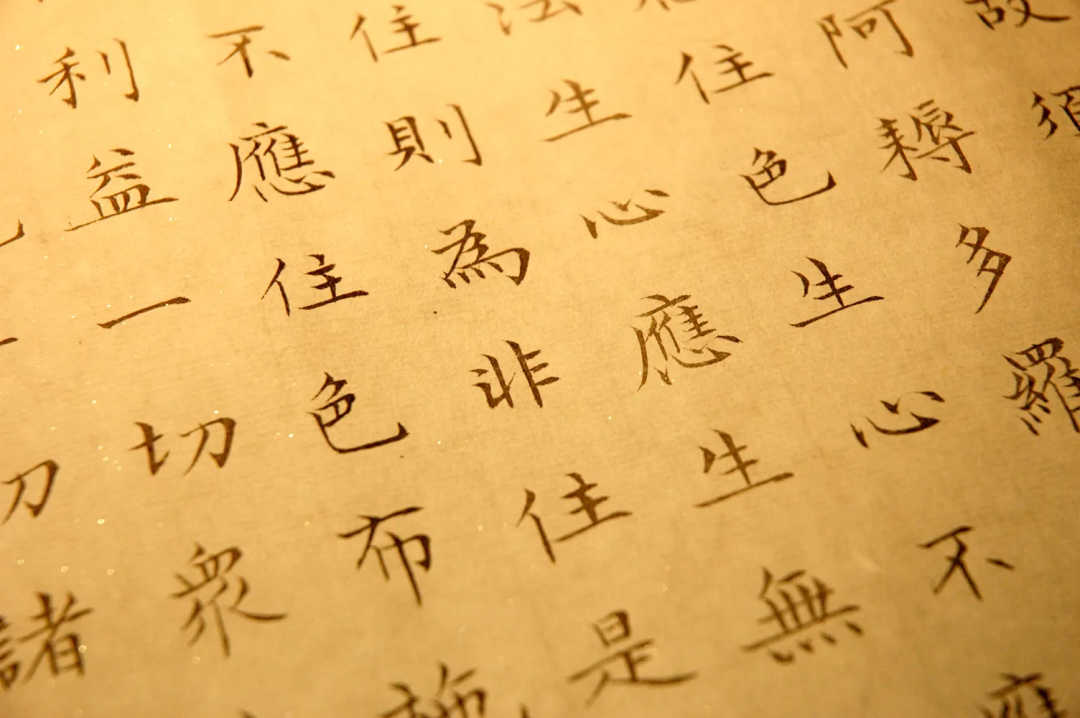 故須
阿耨多羅
住色生心不應
法生心應生無
住則為非住是
不應住色布施
利益一切衆
諸